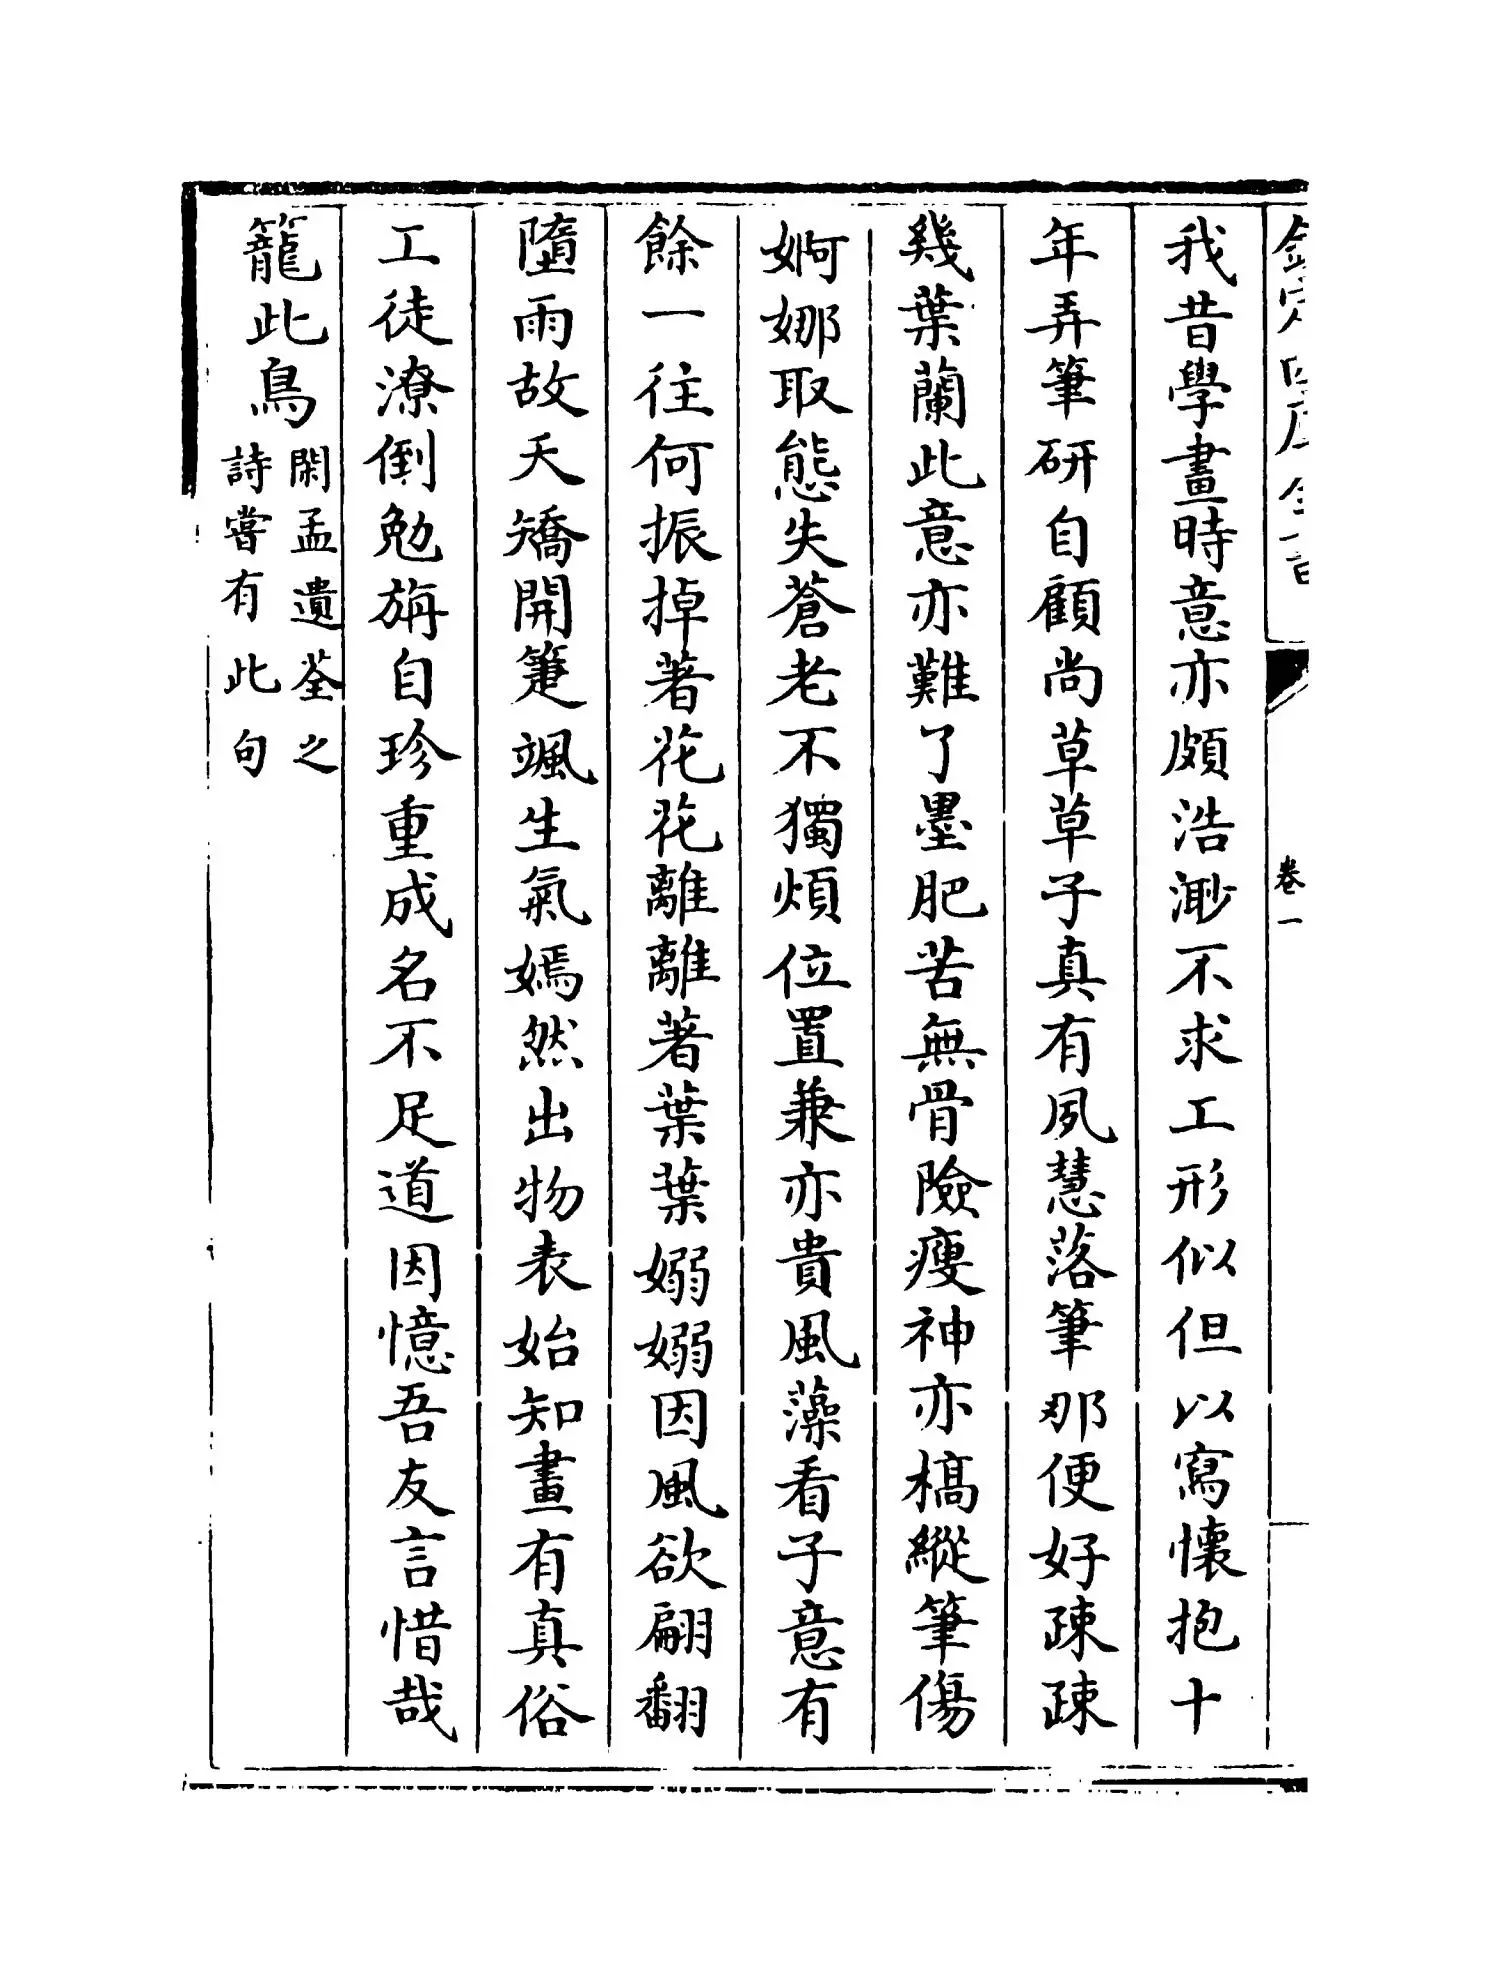 欽定四庫全書
卷一
我昔學畫時意亦頗浩渺不求工形似但以寫懷抱十
年弄筆研自顧尚草草子真有夙慧落筆那便好疎疎
幾葉蘭此意亦難了墨肥苦無骨險瘦神亦槁縱筆傷
婀娜取態失蒼老不獨煩位置兼亦貴風藻看子意有
餘一往何振掉著花花離離著葉葉嫋嫋因風欲翩翻
墮雨故夭矯開箑颯生氣嫣然出物表始知畫有真俗
工徒潦倒勉旃自珍重成名不足道因憶吾友言惜哉
籠此鳥
閑孟遺荃之
詩嘗有此句